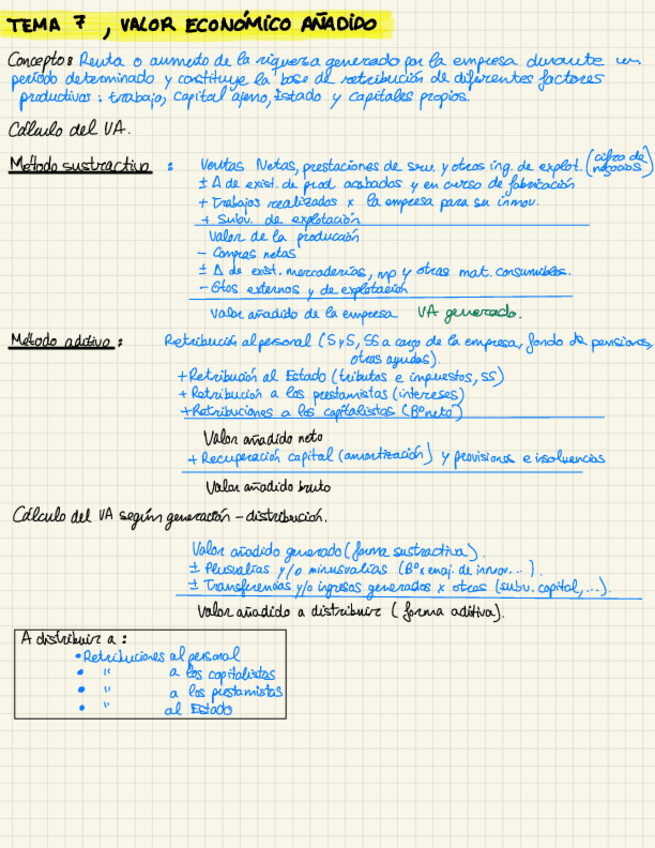 TEMA 7, VALOR ECONÓMICO AÑADIDO
Concepto: Renta o aumento de la riqueza generado por la empresa durante un
período determinado y constituye la base de retribución de diferentes factores
productivos: trabajo, capital ajeno, Estado y capitales propios.
Cálculo del VA.
Método sustractivo : Ventas Netas, prestaciones de serv. y otros ing. de explot. (cifra de negocios)
± Δ de exist. de prod acabados y en curso de fabricación
+ Trabajos realizados x la empresa para su inmov.
+ Subv. de explotación
Valor de la producción
- Compras netas
± Δ de exist. mercaderías, mp y otras mat. consumibles.
- Gtos externos y de explotación
Valor añadido de la empresa VA generado.
Método aditivo : Retribución al personal (SyS, SS a cargo de la empresa, fondo de pensiones,
otras ayudas).
+ Retribución al Estado (tributos e impuestos, SS)
+ Retribución a los prestamistas (intereses)
+ Retribuciones a los capitalistas (Bº neto)
Valor añadido neto
+ Recuperación capital (amortización) y provisiones e insolvencias
Valor añadido bruto
Cálculo del VA según generación - distribución.
Valor añadido generado (forma sustractiva).
± Plusvalías y/o minusvalías (Bº x enaj. de inmov...).
± Transferencias y/o ingresos generados x otros (subv. capital,...).
Valor añadido a distribuir (forma aditiva).
A distribuir a :
• Retribuciones al personal
• " a los capitalistas
• " a los prestamistas
• " al Estado